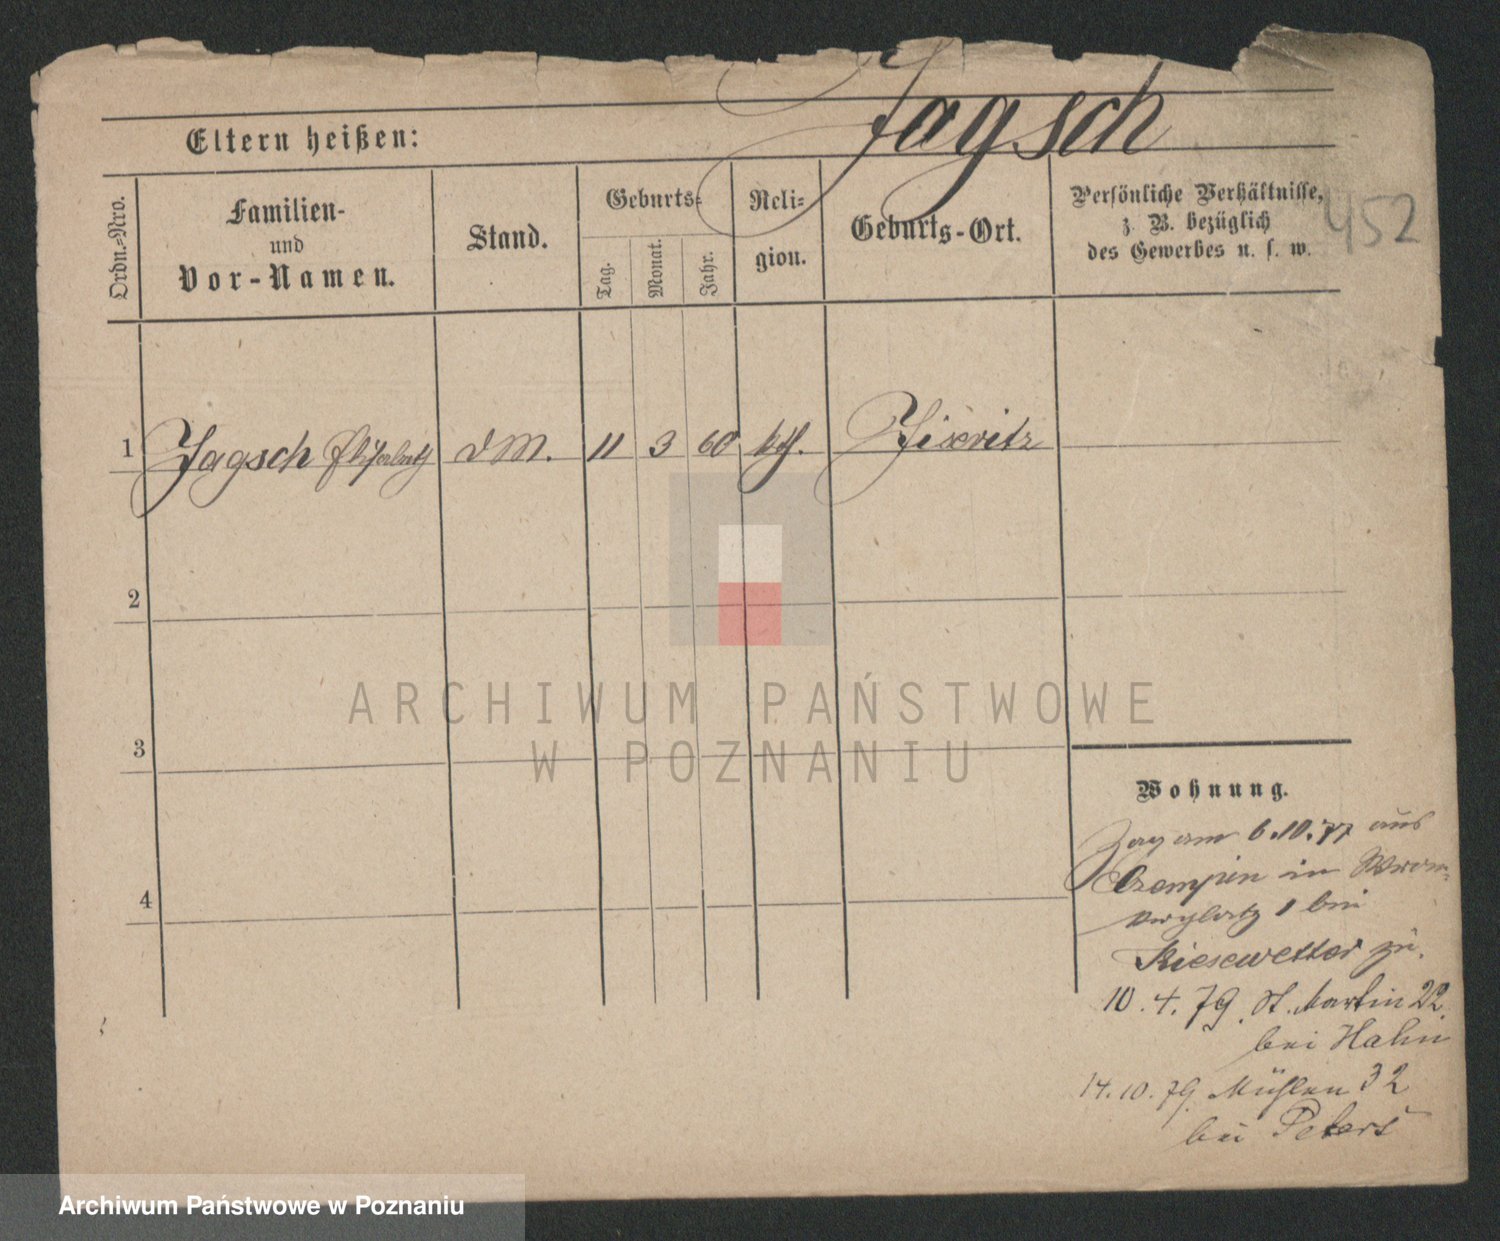 Jagsch
Eltern heißen:
Ordn.-Nro.
Familien-
und
Vor-Namen.
Stand.
Geburts-
Tag.
Monat.
Jahr.
Reli-
gion.
Geburts-Ort.
Persönliche Verhältnisse,
z. B. bezüglich
des Gewerbes u. s. w.
452
1 Jagsch Elisabeth d M. 11 3 60 kth.
2
3
4
ARCHIWUM PAŃSTWOWE
W POZNANIU
Wohnung.
Zog am 6.10.77 aus
Czempin in
1 bei
Kiesewetter zu.
10.4.79. St. Martin 22.
bei Hahn
14.10.79. Mühlen 32
bei Peters
Archiwum Państwowe w Poznaniu